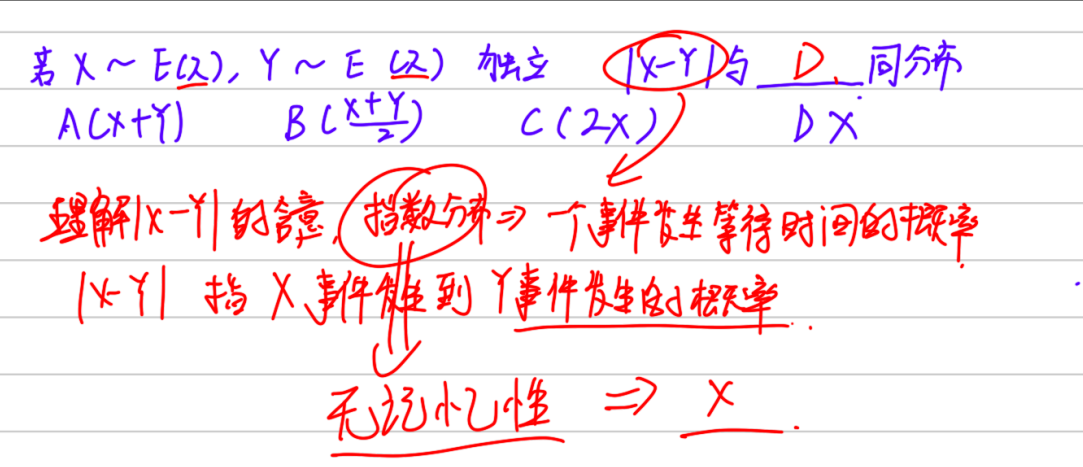 若 X ~ E(λ), Y ~ E(λ) 独立 |X-Y|与 D. 同分布
A(X+Y) B(\frac{X+Y}{2}) C(2X) D X
理解|X-Y|的含意, 指数分布⇒一个事件发生等待时间的概率.
|X-Y| 指 X事件发生到Y事件发生的概率.
无记忆性 ⇒ X.